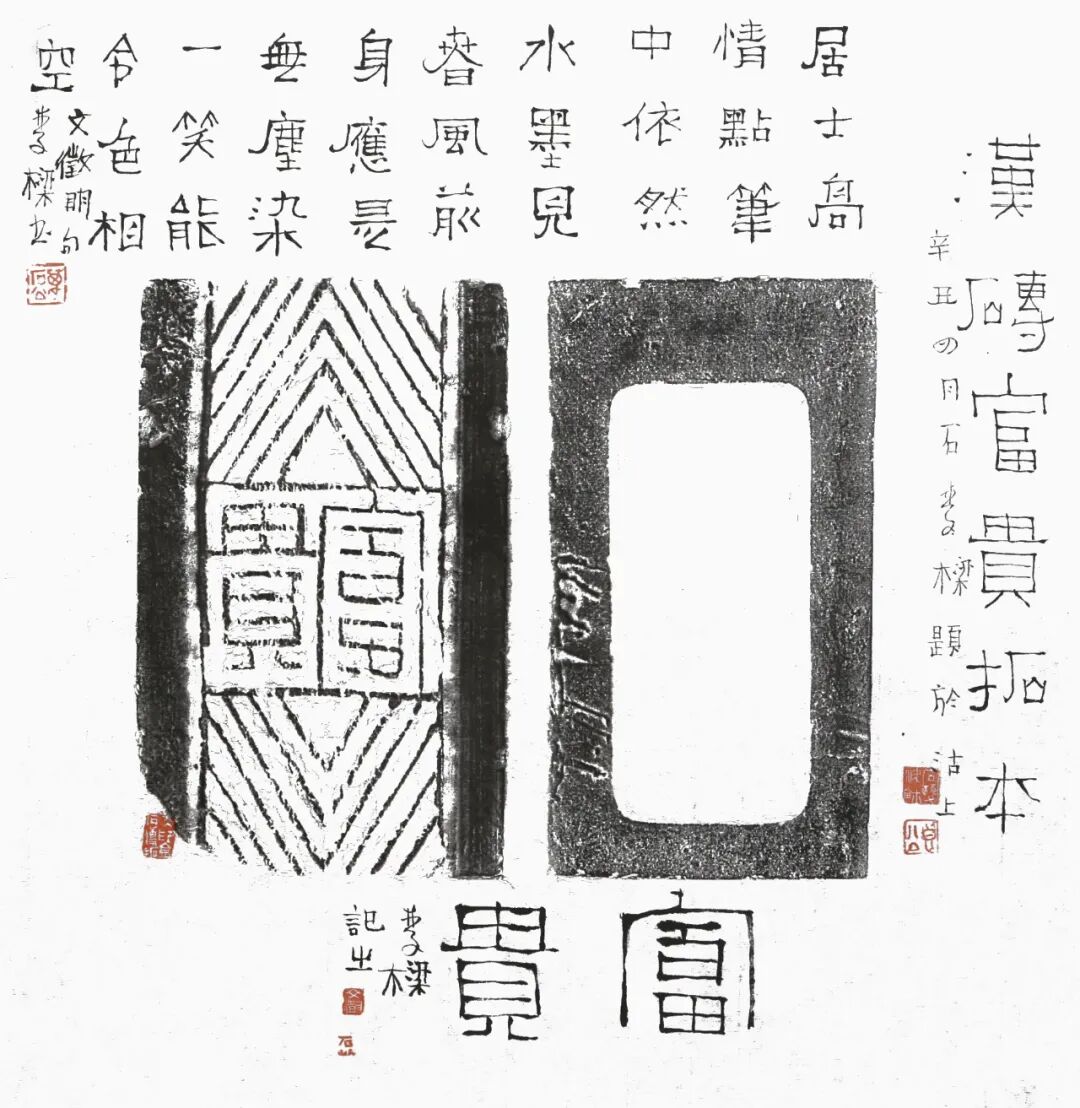 漢磚富貴拓本
辛丑四月石樑題於沽上
居士高
情點筆
中依然
水墨見
春風前
身應是
無塵染
一笑能
令色相
空
文徵明句
樑書
富貴
富貴
樑
記之